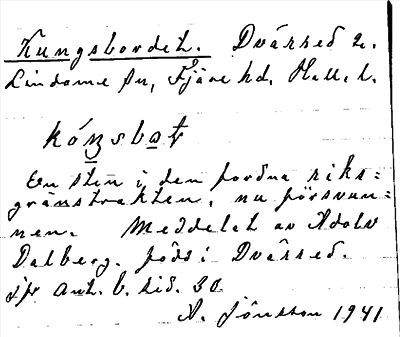 Kungsbordet. Dvärred 2.
Lindome sn, Fjäre hd, Hall. l.
kóŋsbat
En sten i den fordna riks=
gränstrakten, nu försvun=
nen. Meddelat av Adolv
Dalberg, född i Dvärred.
jfr Ant. b. sid. 30
A. Jönsson 1941